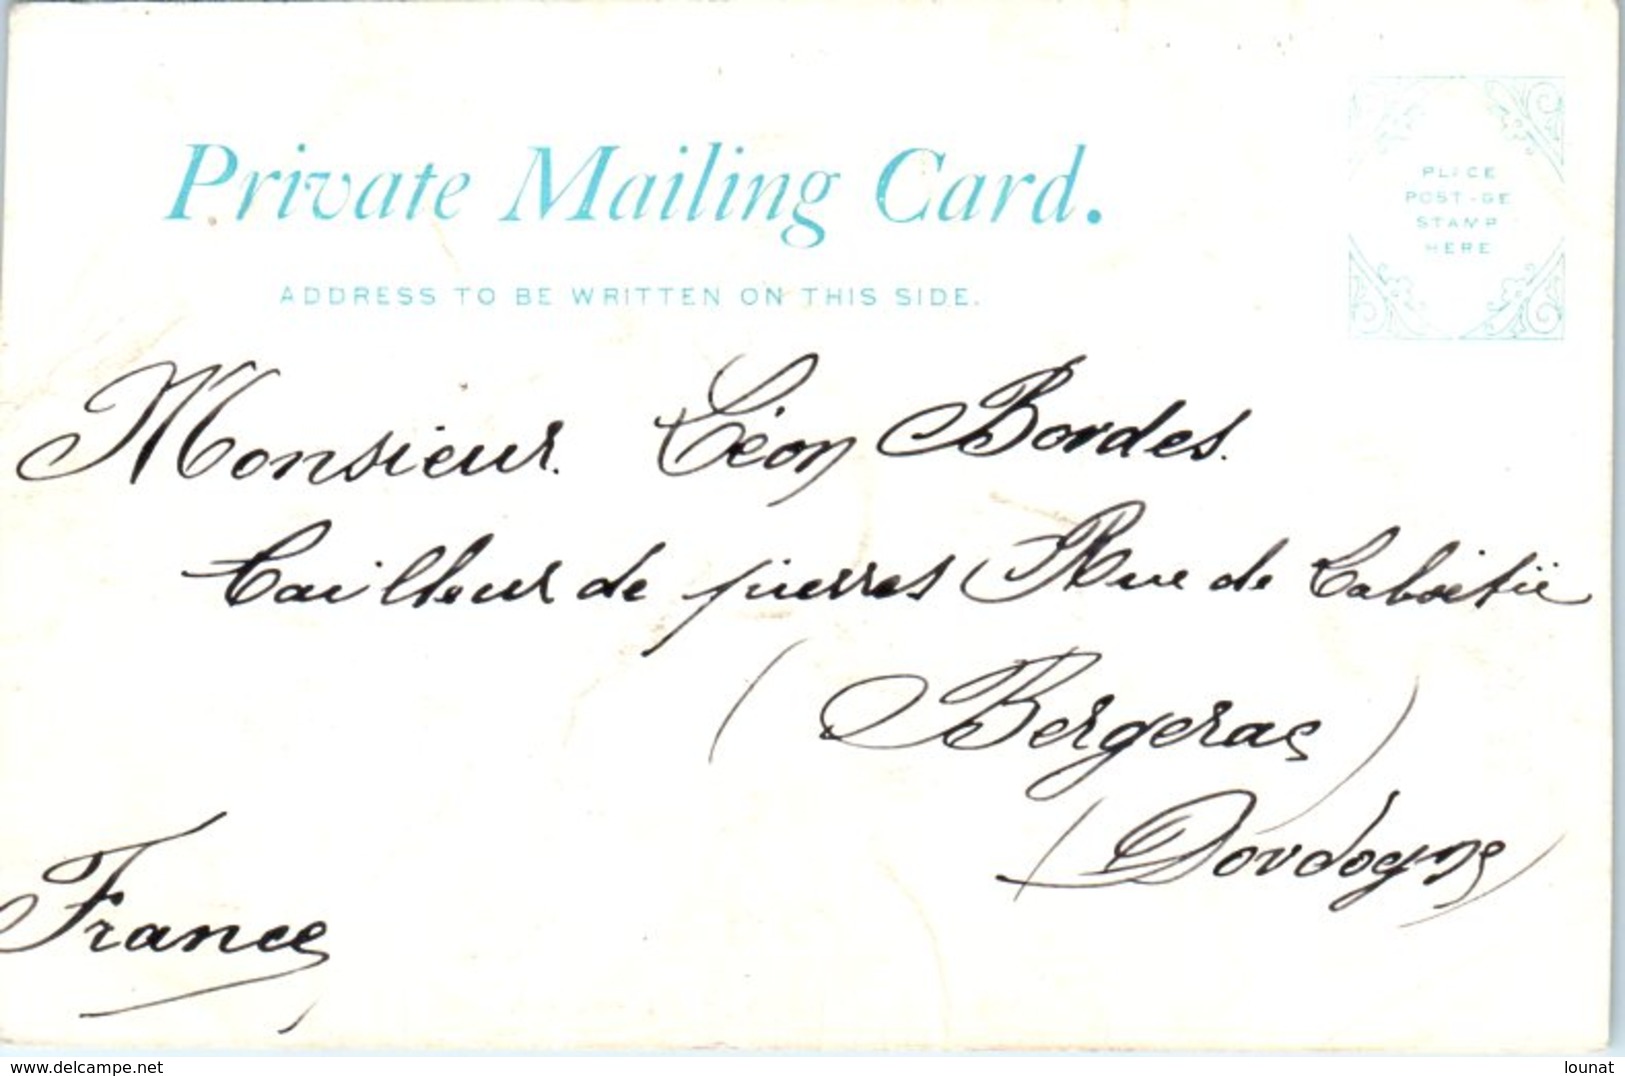 Private Mailing Card.
PLACE
POSTAGE
STAMP
HERE
ADDRESS TO BE WRITTEN ON THIS SIDE.
Monsieur. Léon Bordes.
Tailleur de pierres Rue de
(Bergerac)
(Dordogne)
France
www.delcampe.net
lounat